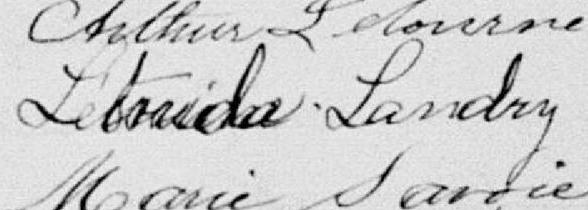 Arthur Letourne
Létraida Landry
Marie Savoie